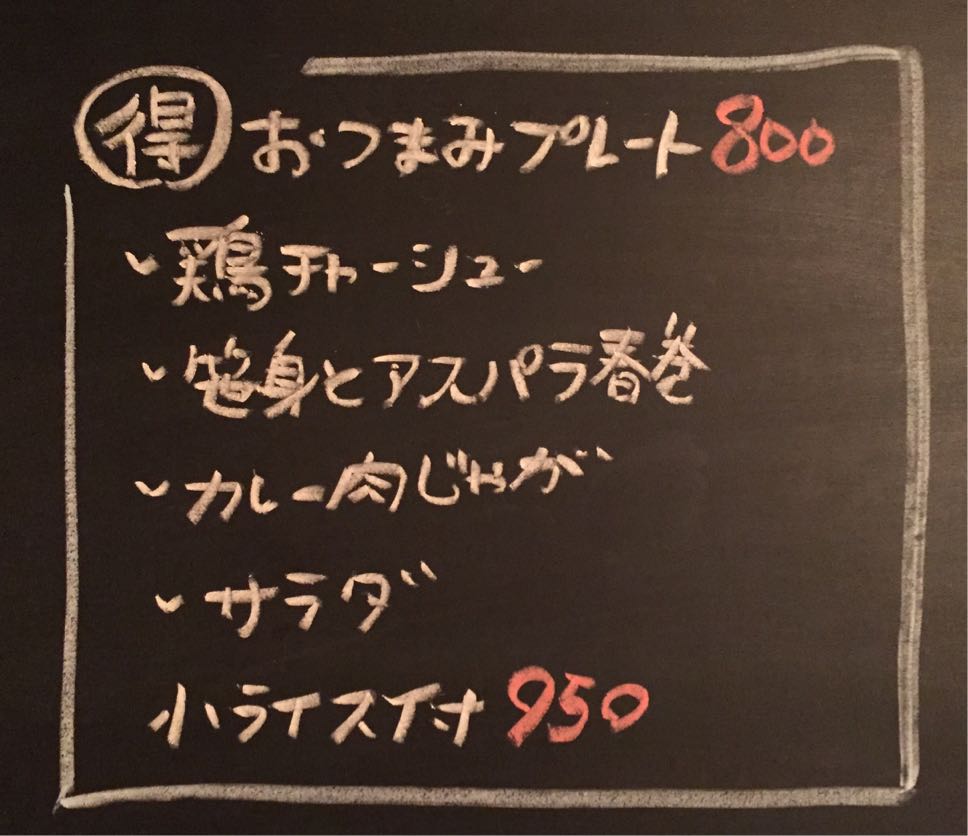 ㊝おつまみプレート 800
・鶏チャーシュー
・笹身とアスパラ春巻
・カレー肉じゃが
・サラダ
小ライス付 950